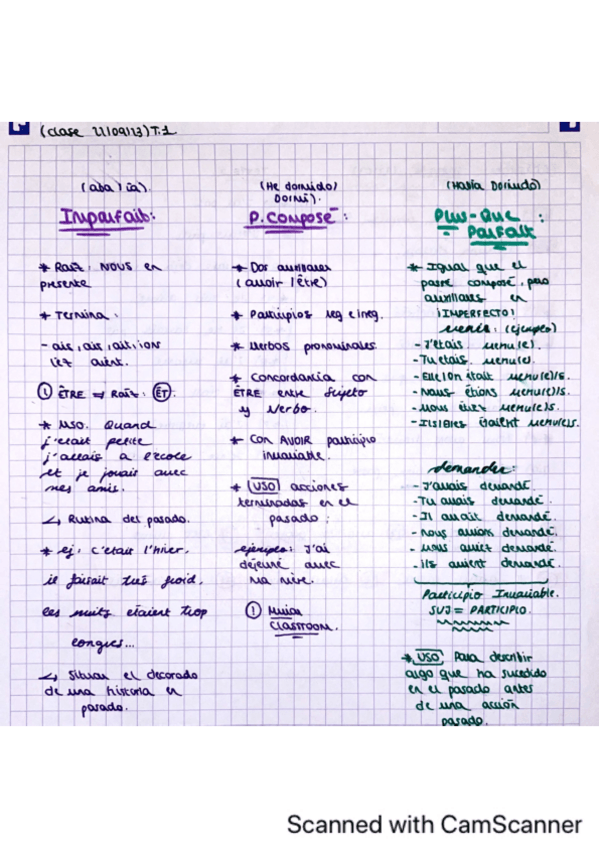 (clase 21/09/23) T.1
(aba / ía).
Imparfait:
* Raíz: NOUS en
presente
* Termina:
- ais, ais, ait, ion
iez aient.
! ÊTRE ⇒ Raíz: ÉT.
* uso. Quand
j'etait petite
j'allais a l'ecole
et je jouais avec
mes amis.
↳ Rutina del pasado.
* ej: c'etait l'hiver,
il faisait très froid,
les nuits etaient trop
longues...
↳ Situar el decorado
de una historia en
pasado.
(He dormido/
Dormí).
P. COMPOSÉ:
* Dos auxiliares
(avoir / être)
* Participios reg e ireg.
* Verbos pronominales.
* Concordancia con
ÊTRE entre Sujeto
y Verbo.
* Con AVOIR participio
invariable.
* USO acciones
terminadas en el
pasado:
ejemplo: J'ai
déjeuné avec
ma mère.
! Mirar
CLASSROOM.
(Había Dormido)
Plus-Que:
Parfait
* Igual que el
passé composé, pero
auxiliares en
¡IMPERFECTO!
venir: (ejemplo)
- J'étais venu(e).
- Tu etais venu(e).
- Elle/on était venu(e)/s.
- Nous étions venu(e)s.
- vous étiez venu(e)s.
- Ils/Elles étaient venu(e)s.
demander:
- J'avais demandé.
- Tu avais demandé.
- Il avait demandé.
- nous avions demandé.
- vous aviez demandé.
- ils avient demandé.
Participio Invariable.
SUJ = PARTICIPIO.
* USO: Para describir
algo que ha sucedido
en el pasado antes
de una acción
pasado.
Scanned with CamScanner